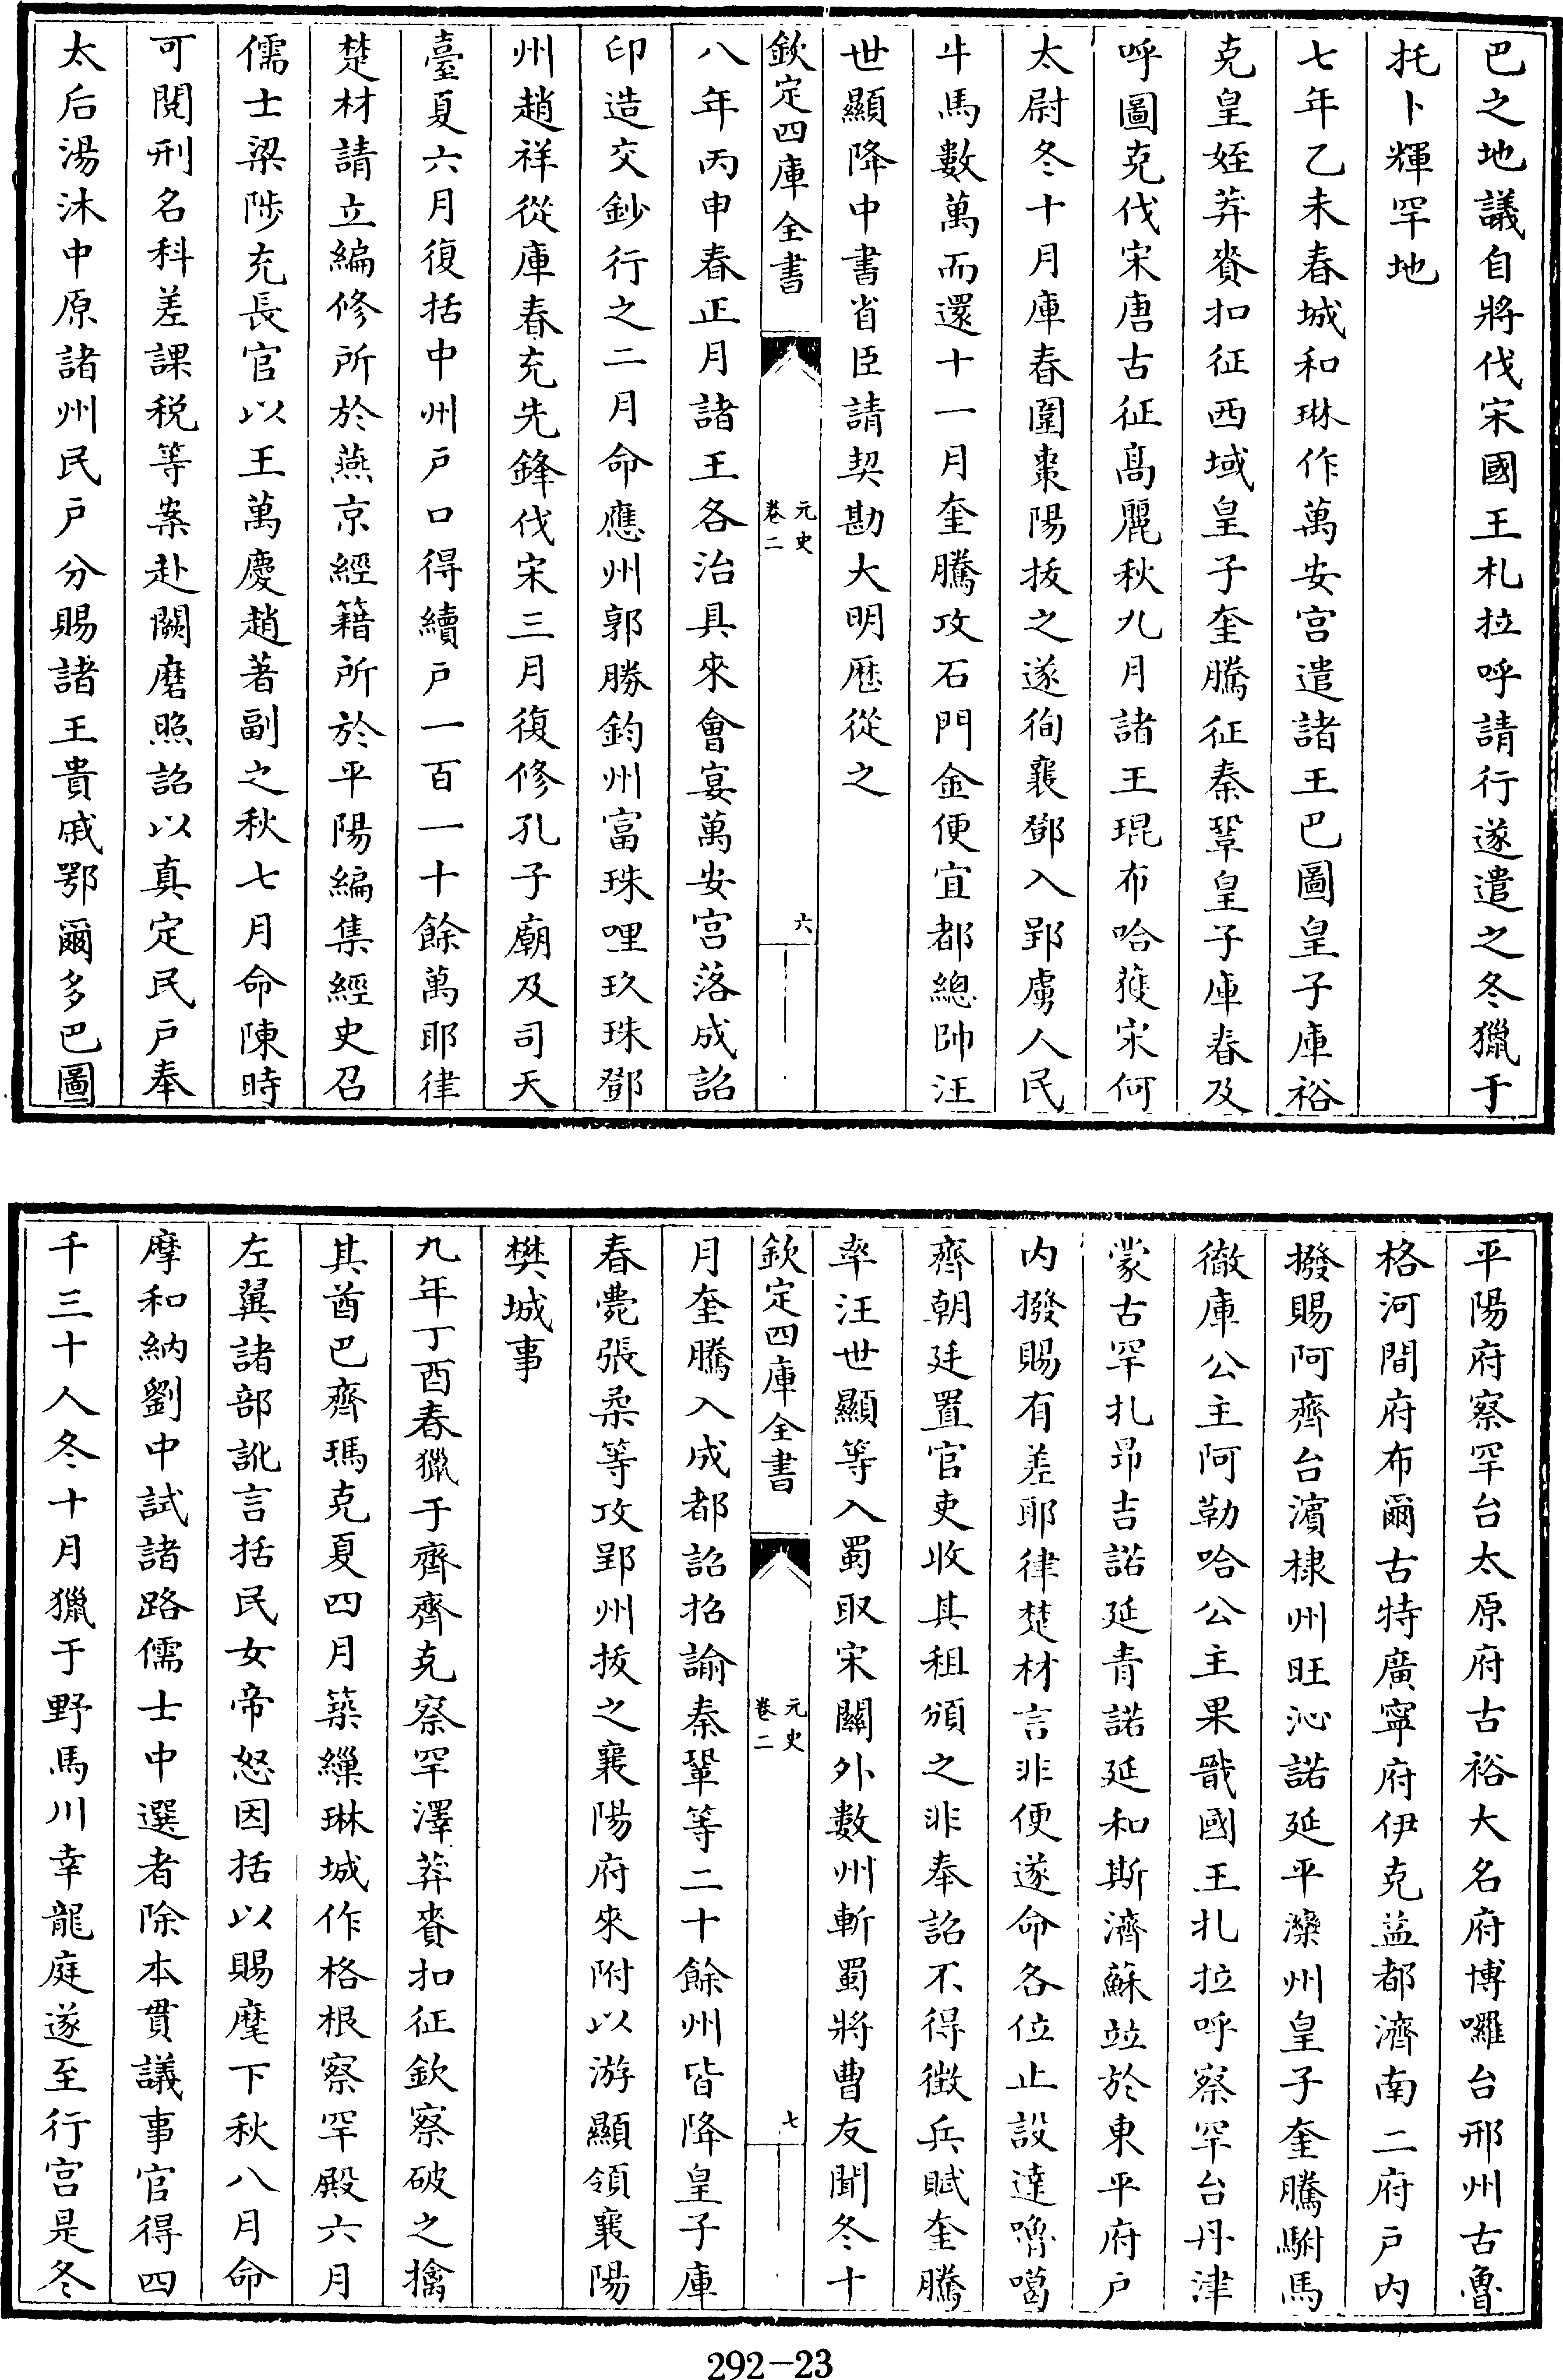 巴之地議自將伐宋國王札拉呼請行遂遣之冬獵于
托卜輝罕地
七年乙未春城和琳作萬安宫遣諸王巴圖皇子庫裕
克皇姪莽賚扣征西域皇子奎騰征秦鞏皇子庫春及
呼圖克伐宋唐古征髙麗秋九月諸王琨布哈獲宋何
太尉冬十月庫春圍棗陽拔之遂徇襄鄧入郢虜人民
牛馬數萬而還十一月奎騰攻石門金便宜都總帥汪
世顯降中書省臣請契勘大明厯從之
欽定四庫全書
元史
卷二
六
八年丙申春正月諸王各治具來會宴萬安宫落成詔
印造交鈔行之二月命應州郭勝鈞州富珠哩玖珠鄧
州趙祥從庫春充先鋒伐宋三月復修孔子廟及司天
臺夏六月復括中州户口得續户一百一十餘萬耶律
楚材請立編修所於燕京經籍所於平陽編集經史召
儒士梁陟充長官以王萬慶趙著副之秋七月命陳時
可閱刑名科差課税等案赴闕磨照詔以真定民户奉
太后湯沐中原諸州民户分賜諸王貴戚鄂爾多巴圖
平陽府察罕台太原府古裕大名府博囉台邢州古魯
格河間府布爾古特廣寧府伊克益都濟南二府户内
撥賜阿齊台濱棣州旺沁諾延平灤州皇子奎騰駙馬
徹庫公主阿勒哈公主果戩國王扎拉呼察罕台丹津
蒙古罕扎昂吉諾延青諾延和斯濟蘇竝於東平府户
内撥賜有差耶律楚材言非便遂命各位止設達嚕噶
齊朝廷置官吏收其租頒之非奉詔不得徴兵賦奎騰
率汪世顯等入蜀取宋關外數州斬蜀將曹友聞冬十
欽定四庫全書
元史
卷二
七
月奎騰入成都詔招諭秦鞏等二十餘州皆降皇子庫
春薨張柔等攻郢州拔之襄陽府來附以游顯領襄陽
樊城事
九年丁酉春獵于齊齊克察罕澤莽賚扣征欽察破之擒
其酋巴齊瑪克夏四月築繅琳城作格根察罕殿六月
左翼諸部訛言括民女帝怒因括以賜麾下秋八月命
摩和納劉中試諸路儒士中選者除本貫議事官得四
千三十人冬十月獵于野馬川幸龍庭遂至行宫是冬
292-23